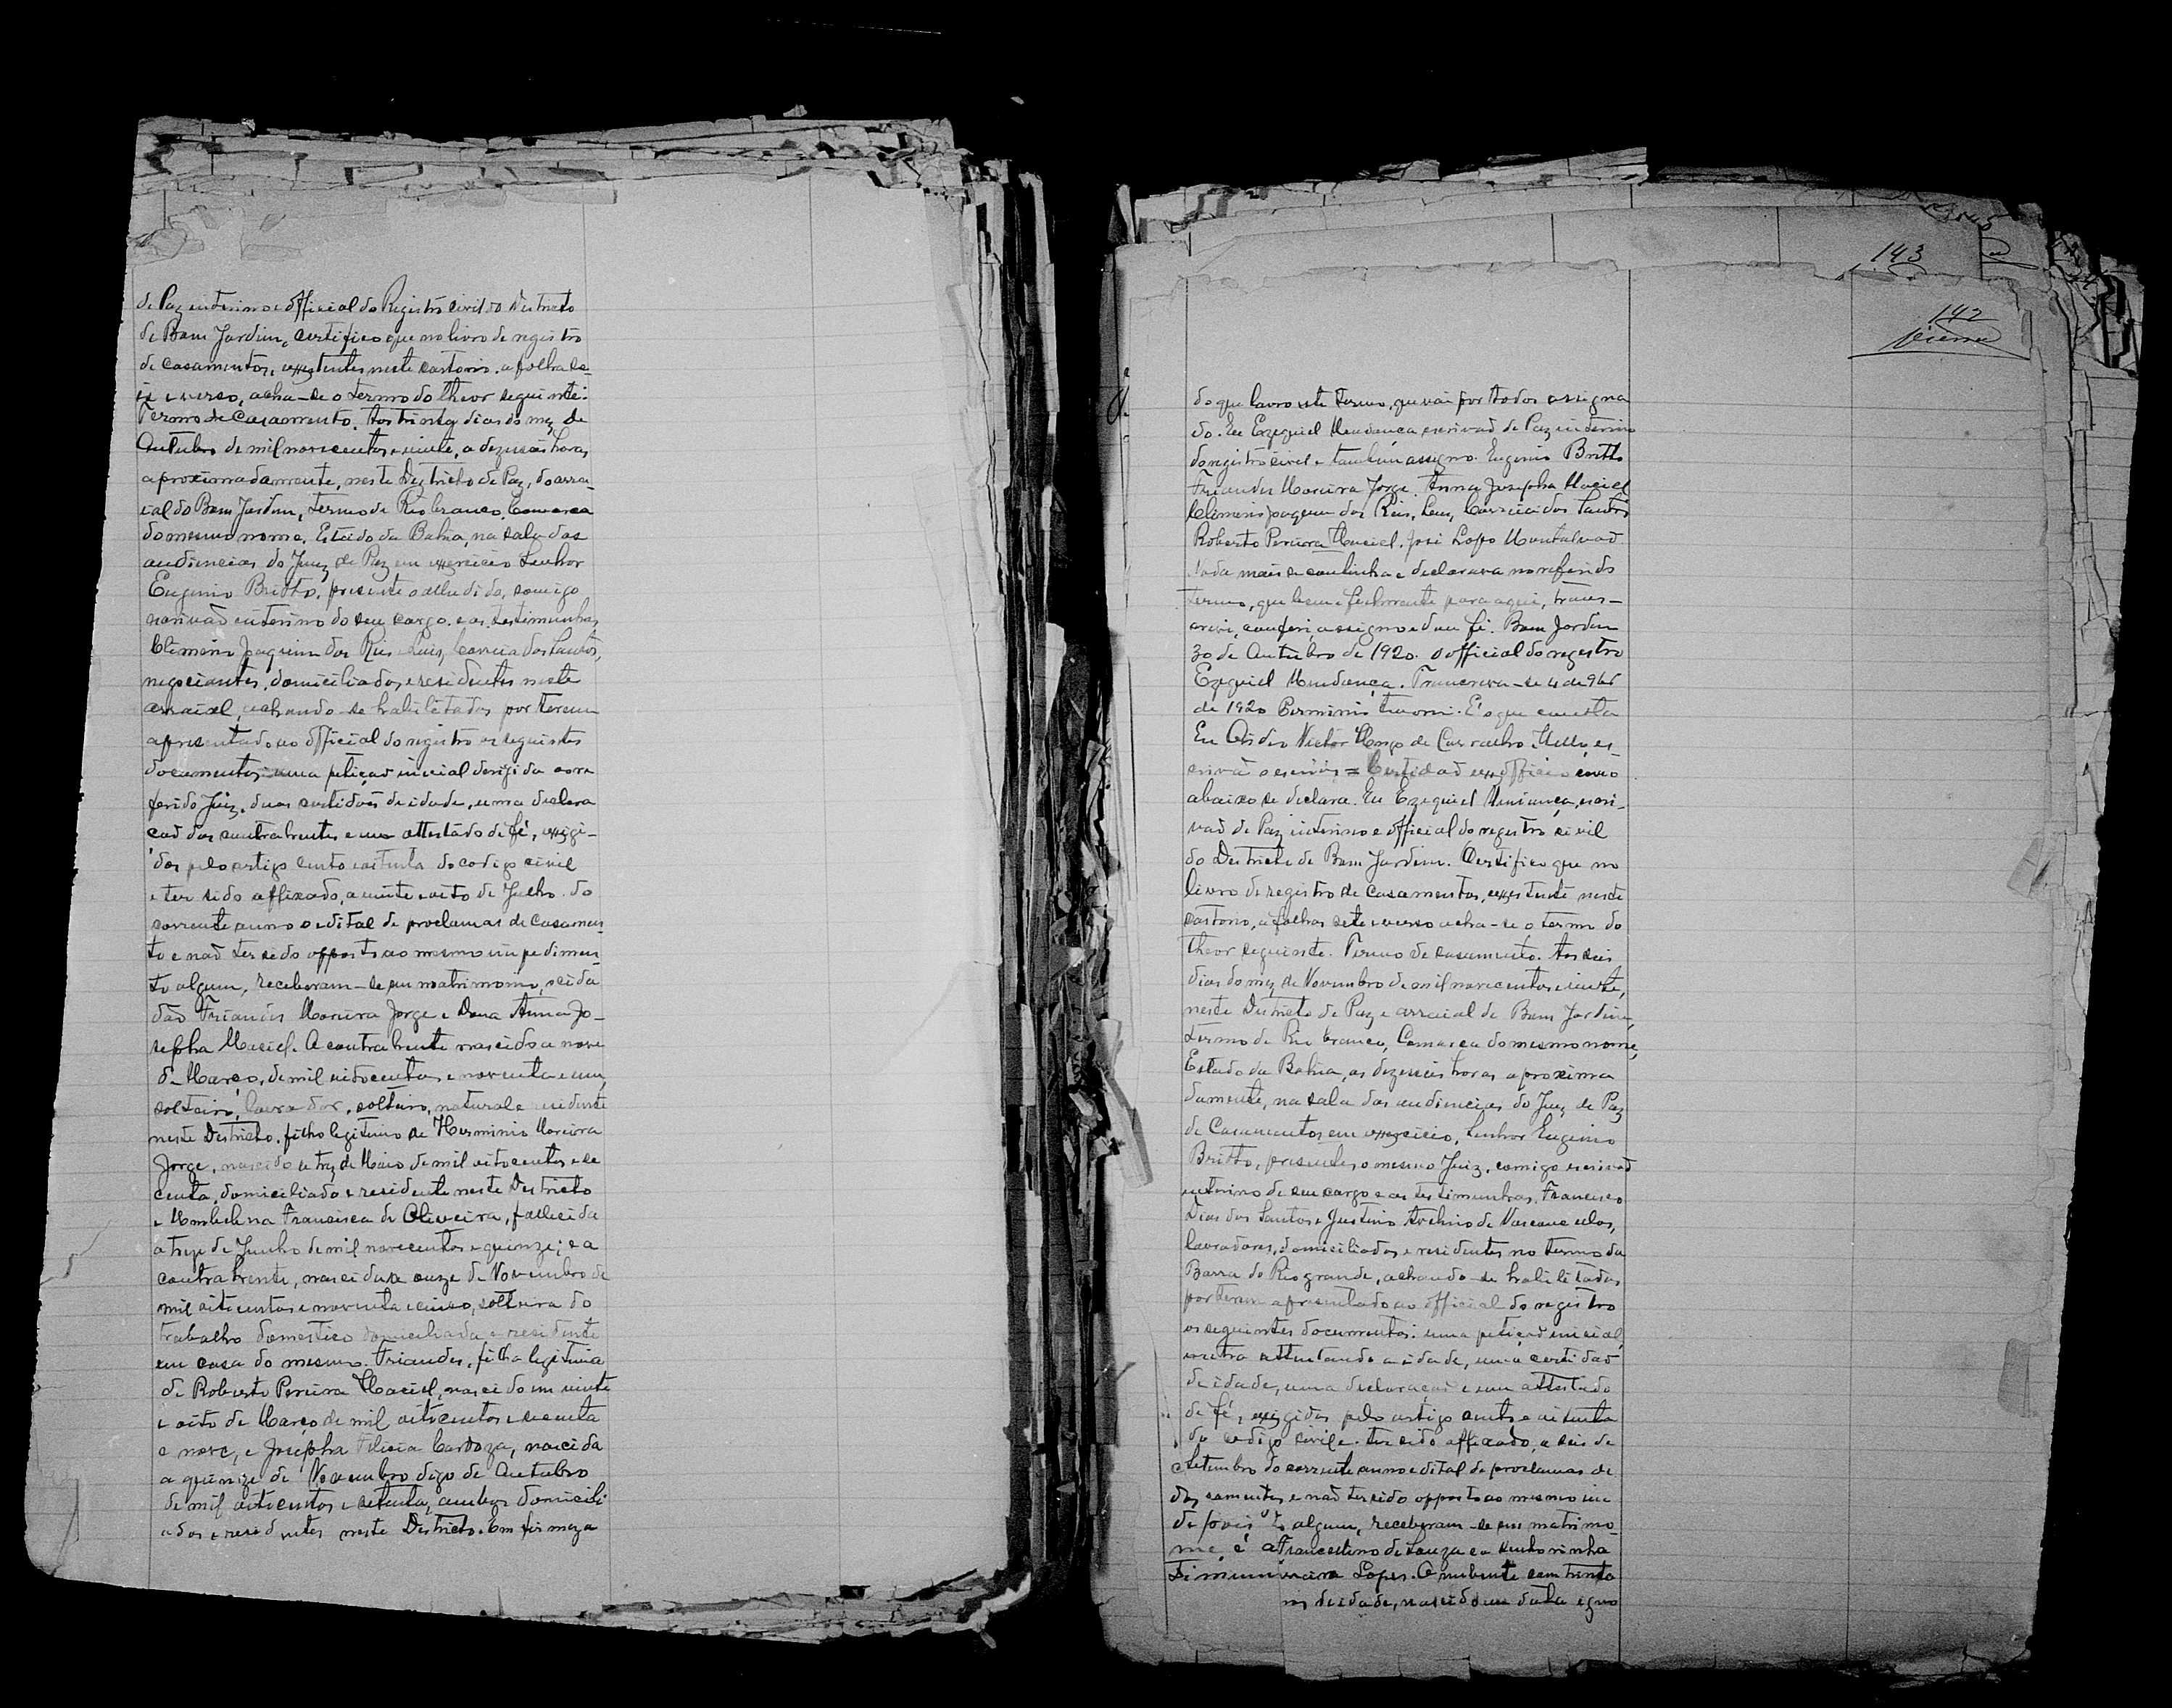 de Paz interino e official do Registro civil do Destricto
de Bom Jardim, certifico que no livro de registro
de casamentos, existentes neste cartorio. a folha se-
is e verso, acha-se o termo do theor seguinte:
Termo de Casamento. Aos trinta dias do mez de
Outubro de mil novecentos e vinte, a dezeseis horas,
aproximadamente, neste Destricto de Paz, do arra-
ial do Bom Jardim, termo de Rio branco, Comarca
do mesmo nome, Estado da Bahia, na sala das
audiencias do Juiz de Paz em exercicio Senhor
Eugenio Britto, presente o alludido, comigo
escrivão interino do seu cargo, e as testimunhas
Clemens Joaquim dos Reis e Luis Correia dos Santos,
negociantes, domiciliados e residentes neste
arraial, achando-se habilitados por terem
apresentado ao official do registro os seguintes
documentos: uma petição inicial dirigida ao re
ferido Juiz, duas certidões de idade, uma declara
ção dos contrahentes e um attestado de fé, exigi-
dos pelo artigo cento e oitenta do codigo civil
e ter sido affixado, a vinte e oito de Julho do
corrente anno o edital de proclamas de casamen-
to e não ter sido opposto ao mesmo impedimen-
to algum, receberam-se em matrimonio, o cida
dão Friandes Moreira Jorge e Dona Anna Jo-
sepha Maciel. O contrahente nascido a nove
de Março, de mil oitocentos e noventa e um,
solteiro, lavrador, solteiro, natural e residente
neste Destricto, filho legitimo de Herminio Moreira
Jorge, nascido a trez de Maio de mil oitocentos e se
centa, domiciliado e residente neste Destricto
e Umbelina Francisca de Oliveira, fallecida
a treze de Junho de mil novecentos e quinze; e a
contrahente, nascida a onze de Novembro de
mil oitocentos e noventa e cinco, solteira do
trabalho domestico domiciliada e residente
em casa do mesmo Friandes, filha legitima
de Roberto Pereira Maciel, nascido em vinte
e oito de Março de mil oitocentos e secenta
e nove, e Josepha Filicia Cardoza, nascida
a quinze de Novembro digo de Outubro
de mil oitocentos e setenta, ambos domicili
ados e residentes neste Destricto. Em firmeza
143
142
Vieira
do que lavro este termo, que vai por todos assigna
do. Eu Ezequiel Mendonça escrivão de Paz interino
do registro civil e tambem assigno. Eugenio Britto
Friandes Moreira Jorge. Anna Josepha Maciel
Clemens Joaquim dos Reis, Luis, Correia dos Santos
Roberto Pereira Maciel. José Lopo Montalvão
Nada mais se continha e declarava no referido
termo, que bem e fielmente para aqui, trans-
crevi, conferi, assigno e dou fé. Bom Jardim
30 de Outubro de 1920. O official do registro
Ezequiel Mendonça. Transcreva-se 4 de 9br
de 1920 É o que consta
Eu Victor Hugo de Carvalho Mello, es
crivão o escrevi = Certidão exofficio como
abaixo se declara. Eu Ezequiel Mendonça, escri-
vão de Paz interino e official do registro civil
do Destricto de Bom Jardim. Certifico que no
livro de registro de casamentos, existente neste
cartorio, a folhas sete e verso acha-se o termo do
theor seguinte. Termo de casamento. Aos seis
dias do mez de Novembro de mil novecentos e vinte,
neste Destricto de Paz e arraial de Bom Jardim,
termo de Rio branco, Comarca do mesmo nome,
Estado da Bahia, as dezeseis horas aproxima
damente, na sala das audiencias do Juiz de Paz
de Casamentos em exercicio, Senhor Eugenio
Britto, presentes o mesmo Juiz, comigo escrivão
interino de seu cargo e as testimunhas, Francisco
Dias dos Santos e Justino Avelino de Vasconcelos,
lavradores, domiciliados e residentes no termo da
Barra do Rio grande, achando-se habilitados,
por terem apresentado ao official do registro
os seguintes documentos: uma petição inicial,
outra attestando a idade, uma certidão
de idade, uma declaração e um attestado
de fé, exigidos pelo artigo cento e oitenta
do codigo civil e ter sido affixado, a seis de
Setembro do corrente anno edital de proclamas de
casamentos e não ter sido opposto ao mesmo im
algum, receberam-se em matrimo-
Francelino de Souza e a senhorinha
Lopes. O nubente com trinta
de idade, nascido em data igno